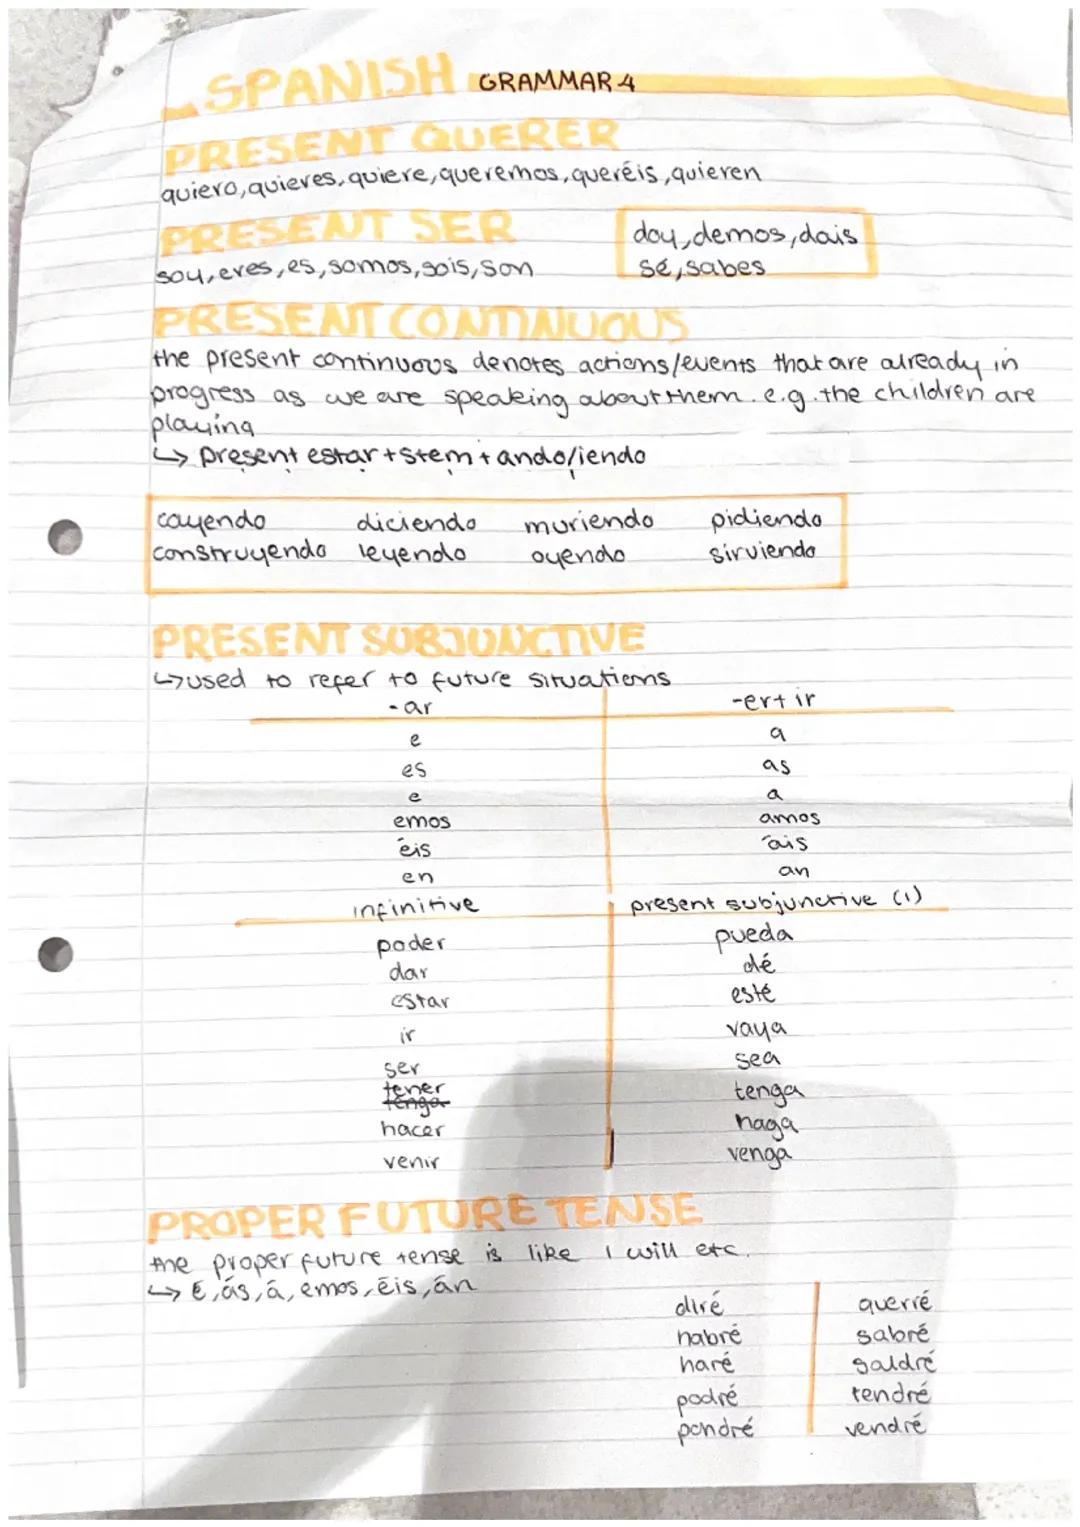 SPANISH GRAMMAR 4
PRESENT QUERER
quiero, quieres, quiere, queremos, queréis, quieren
PRESENT SER
soy, eres, es, somos, sois, son
doy, demos, dais
sé, sabes
PRESENT CONTINUOUS
the present continuous denotes actions/events that are already in
progress as we are speaking about them. e.g. the children are
playing
↳ present estar + stem + ando/iendo
cayendo diciendo muriendo pidiendo
construyendo leyendo oyendo sirviendo
PRESENT SUBJUNCTIVE
↳ used to refer to future situations
-ar -er + ir
e a
es as
e a
emos amos
éis áis
en an
infinitive present subjunctive (1)
poder pueda
dar dé
estar esté
ir vaya
ser sea
tener tenga
tenga
hacer haga
venir venga
PROPER FUTURE TENSE
the proper future tense is like I will etc.
↳ é, ás, á, emos, éis, án
diré querré
habré sabré
haré saldré
podré tendré
pondré vendré